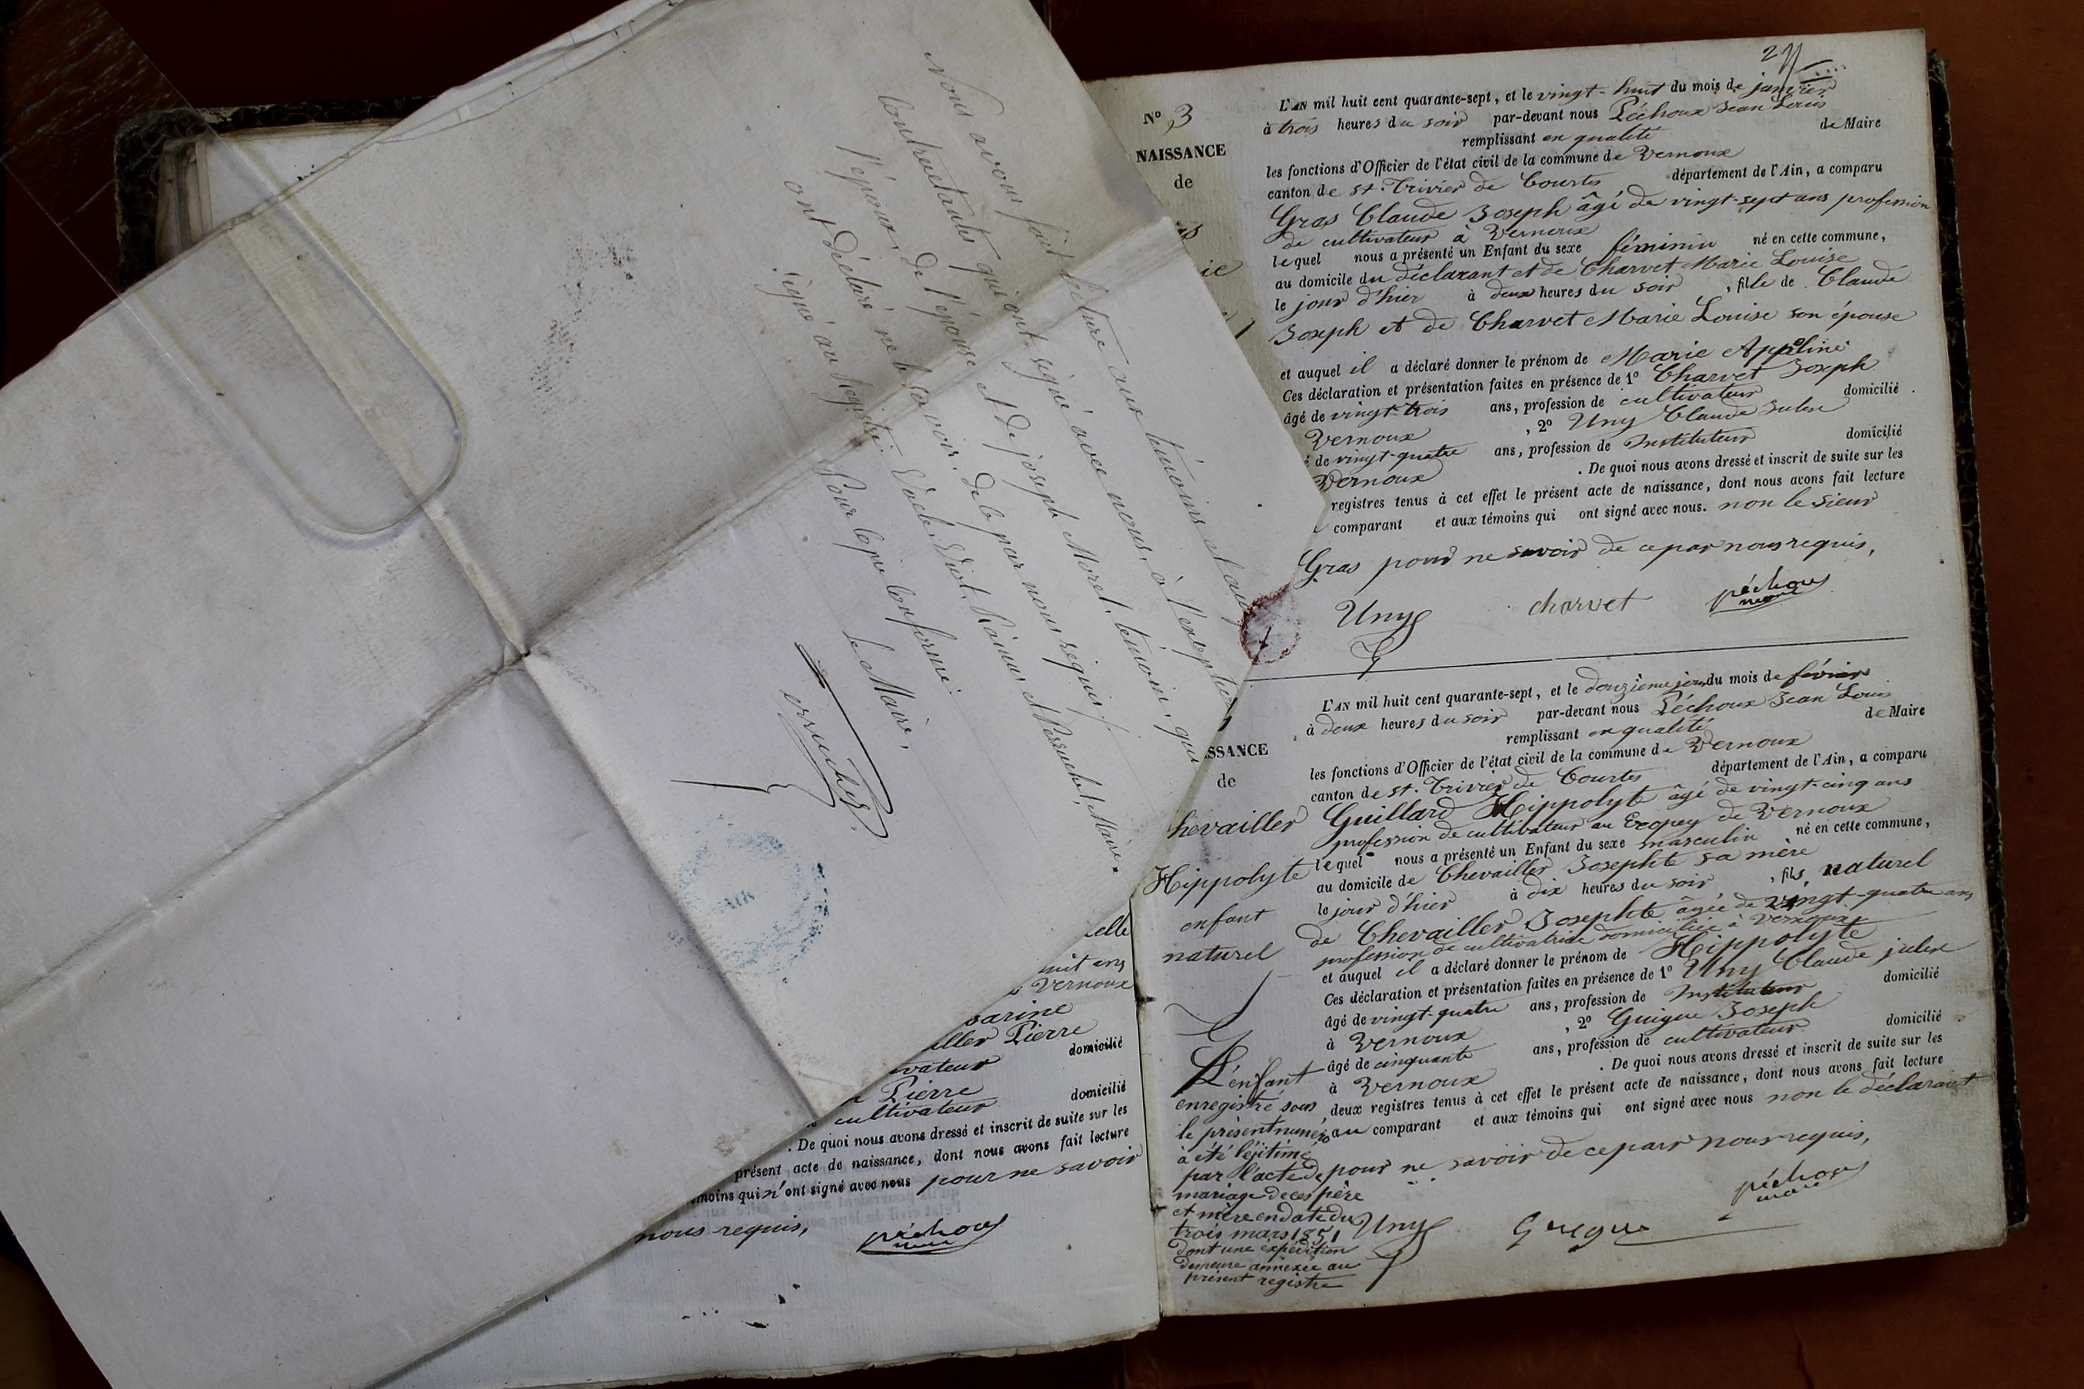 Nous avons fait lecture aux témoins et aux
contractants qui ont signé avec nous, à l'exception
l'épouse, de l'épouse et de joseph Morel, témoin, qui
ont déclaré ne le savoir. de ce par nous requis
signé au Registre
Pour copie conforme
le Maire,
elle
uit ans
Vernoux
sarine
aller Pierre
domicilié
vateur
Pierre
domicilié
cultivateur
. De quoi nous avons dressé et inscrit de suite sur les
présent acte de naissance, dont nous avons fait lecture
moins qui n'ont signé avec nous pour ne savoir
nous requis,
péchoux
maire
27
N° 3
NAISSANCE
de
L'AN mil huit cent quarante-sept, et le vingt-huit du mois de janvier
à trois heures du soir par-devant nous Péchoux Jean Louis
remplissant en qualité de Maire
les fonctions d'Officier de l'état civil de la commune de Vernoux
canton de St. Trivier de Courtes département de l'Ain, a comparu
Gras Claude Joseph âgé de vingt-sept ans profession
de cultivateur à Vernoux
lequel nous a présenté un Enfant du sexe féminin né en cette commune,
au domicile du déclarant et de Charvet Marie Louise
le jour d'hier à deux heures du soir , fille de Claude
Joseph et de Charvet Marie Louise son épouse
et auquel il a déclaré donner le prénom de Marie Appoline
Ces déclaration et présentation faites en présence de 1° Charvet Joseph
âgé de vingt-trois ans, profession de cultivateur domicilié
Vernoux , 2° Uny Claude Julex
é de vingt-quatre ans, profession de Instituteur domicilié
Vernoux . De quoi nous avons dressé et inscrit de suite sur les
registres tenus à cet effet le présent acte de naissance, dont nous avons fait lecture
comparant et aux témoins qui ont signé avec nous. non le sieur
Gras pour ne savoir de ce par nous requis,
Uny charvet péchoux
maire
SSANCE
de
hevailler
Hippolyte
enfant
naturel
L'AN mil huit cent quarante-sept, et le douzième jour du mois de février
à deux heures du soir par-devant nous Péchoux Jean Louis
remplissant en qualité de Maire
les fonctions d'Officier de l'état civil de la commune de Vernoux
canton de St. Trivier de Courtes département de l'Ain, a comparu
Guillard Hippolyte âgé de vingt-cinq ans
profession de cultivateur au Ecopey de Vernoux
lequel nous a présenté un Enfant du sexe masculin né en cette commune,
au domicile de Chevailler Josephte sa mère
le jour d'hier à dix heures du soir , fils naturel
de Chevailler Josephte âgée de vingt-quatre ans
profession de cultivatrice domiciliée à Vernoux
et auquel il a déclaré donner le prénom de Hippolyte
Ces déclaration et présentation faites en présence de 1° Uny Claude julex
âgé de vingt-quatre ans, profession de Instituteur domicilié
à Vernoux , 2° Guigue Joseph
âgé de cinquante ans, profession de cultivateur domicilié
à Vernoux . De quoi nous avons dressé et inscrit de suite sur les
deux registres tenus à cet effet le présent acte de naissance, dont nous avons fait lecture
au comparant et aux témoins qui ont signé avec nous non le déclarant
pour ne savoir de ce par nous requis,
Uny Guigue péchoux
maire
L'enfant
enregistré sous
le présent numéro
a été léjitimé
par l'acte de
mariage de ces père
et mère en date du
trois mars 1851
dont une expédition
demeure annexée au
présent registre